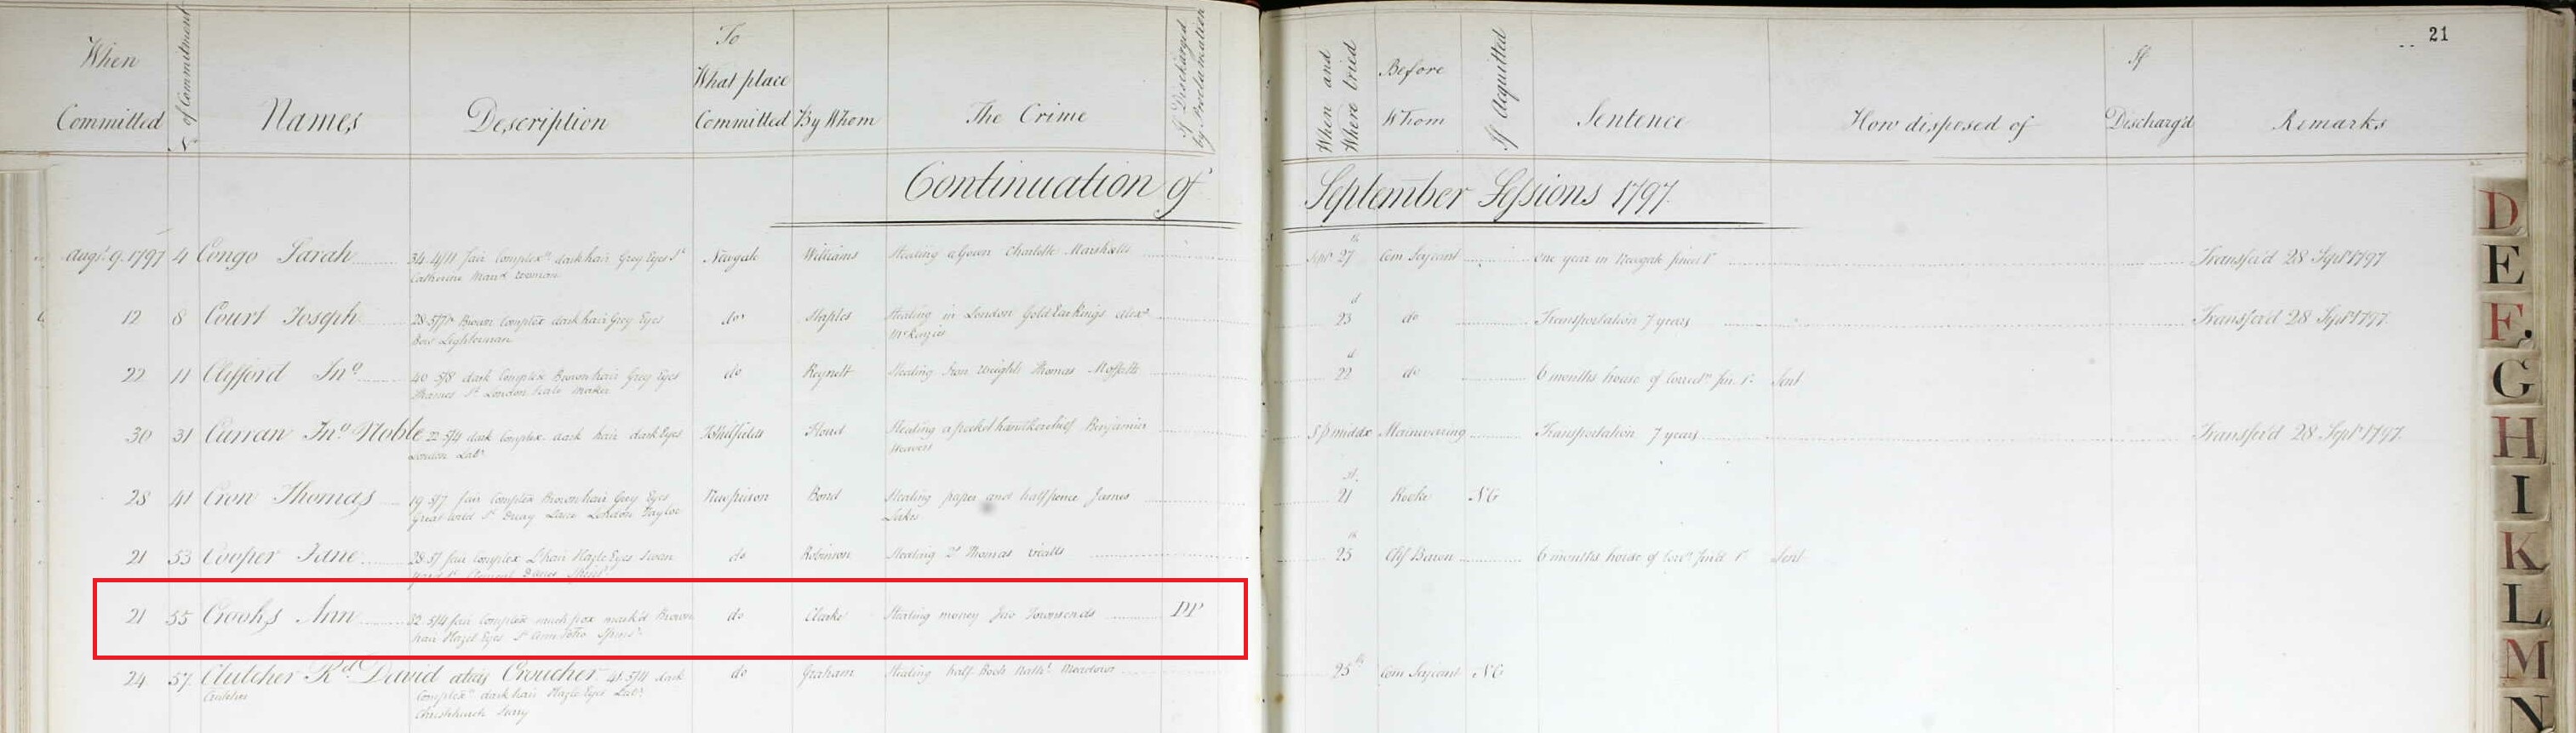 21
When Committed
No of Commitment
Names
Description
To What place Committed
By Whom
The Crime
If Discharged by Proclamation
When and Where tried
Before Whom
If Acquitted
Sentence
How disposed of
If Discharg'd
Remarks
Continuation of September Sessions 1797
Augt 9. 1797 4 Congo Sarah 34 4/11 fair Complexn dark hair Grey Eyes St Newgate Williams Stealing a Gown Charlotte Marshalls Sept 27th Com Serjeant one year in Newgate fined 1s Transfer'd 28 Sept 1797
Catherine Mard woman
12 8 Court Joseph 28 5/7½ Brown Complex dark hair Grey Eyes do Staples Stealing in London Gold Earrings Alexr 23d do Transportation 7 years Transfer'd 28 Sept 1797
Bow Lighterman McKenzies
22 11 Clifford Jno 40 5/8 dark Complex Brown hair Grey Eyes do Reynett Stealing Iron weights Thomas Moffatts 22d do 6 months house of Correctn fin. 1s Sent
Thames St London maker
30 31 Curran Jno Noble 22 5/4 dark Complex dark hair dark Eyes Flood Stealing a pocket handkerchief Benjamin middx Mainwaring Transportation 7 years Transfer'd 28 Sept 1797
London Labr Weavers
28 41 Cron Thomas 19 5/7 fair Complex Brown hair Grey Eyes New prison Bond Stealing paper and halfpence James 21st Rooke NG
Great Wild St Drury Lane London Taylor
21 53 Cooper Jane 28 5/ fair Complex L hair Hazle Eyes Swan do Robinson Stealing Thomas 25th Chf Baron 6 months house of Corrn fin'd 1s Sent
21 55 Crooks Ann 32 5/4 fair Complex much pox mark'd Brown do Clarke Stealing money Jno Townsends DP
hair Hazel Eyes St Ann Soho Spinsr
24 57 Clutcher Rd David alias Croucher 41 5/4 dark do Graham Stealing half Nathl Meadows 25th Com Serjeant NG
Complexn dark hair Hazle Eyes Labr
Christchurch Surry
D
E
F.
G
H
I
K
L
M
N